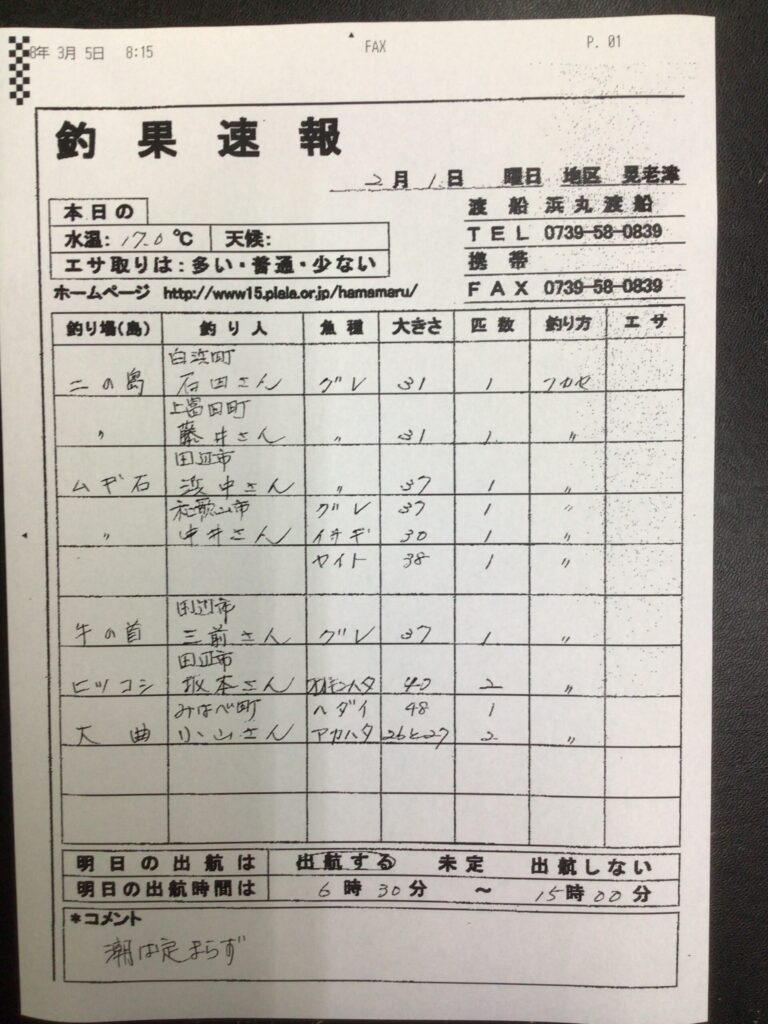 8年 3月 5日 8:15 FAX P. 01
釣果速報
2月 1日 曜日 地区 見老津
本日の
水温: 17.0 ℃ 天候:
エサ取りは:多い・普通・少ない
渡船 浜丸渡船
TEL 0739-58-0839
携帯
FAX 0739-58-0839
ホームページ http://www15.plala.or.jp/hamamaru/
釣り場(島) 釣り人 魚種 大きさ 匹数 釣り方 エサ
白浜町
二の島 石田さん グレ 31 1 フカセ
上富田町
〃 藤井さん 〃 31 1 〃
田辺市
ムギ石 浜中さん 〃 37 1 〃
和歌山市 グレ 37 1 〃
〃 中井さん イサギ 30 1 〃
ヤイト 38 1 〃
田辺市
牛の首 三前さん グレ 37 1 〃
田辺市
ヒツコシ 坂本さん 40 2 〃
みなべ町 ヘダイ 48 1
大曲 小山さん アカハタ 26と27 2 〃
明日の出航は 出航する 未定 出航しない
明日の出航時間は 6時30分 ～ 15時00分
*コメント
潮は定まらず